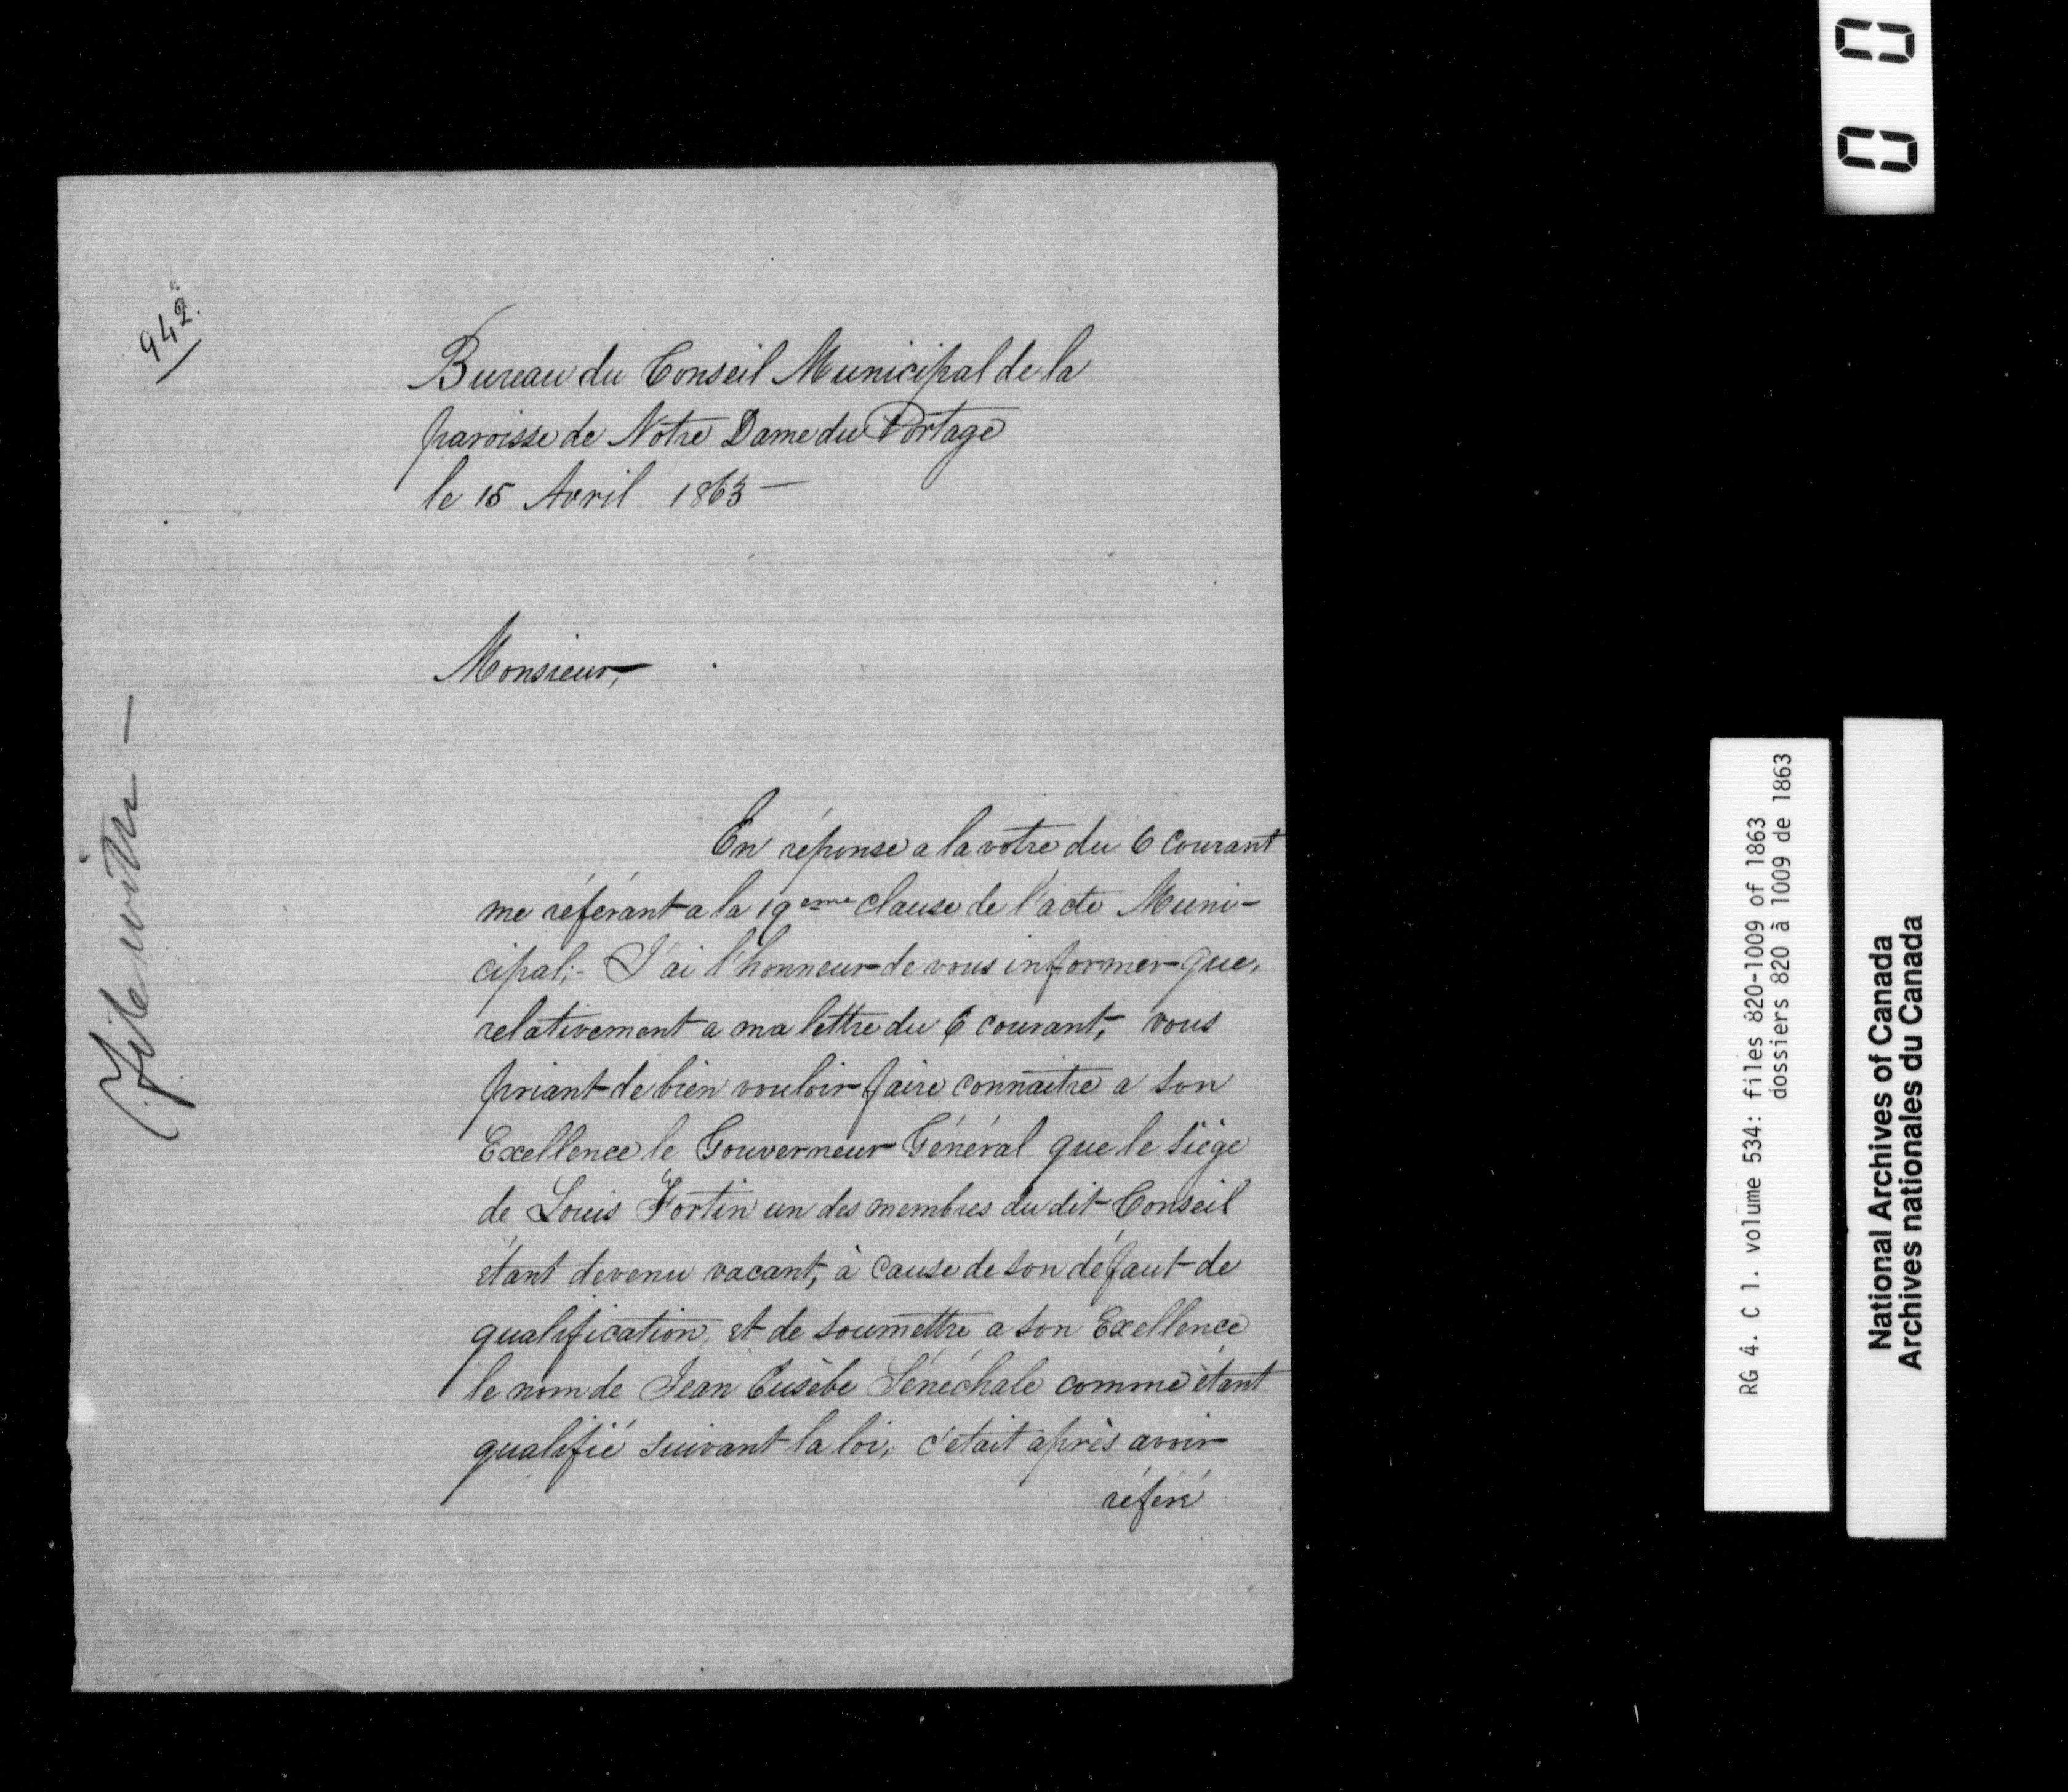 942.
Bureau du Conseil Municipal de la
paroisse de Notre Dame du Portage
le 15 Avril 1863 —
Monsieur,
En réponse a la votre du 6 courant
me référant a la 19eme clause de l'acte Muni-
cipal;- J'ai l'honneur de vous informer que,
relativement a ma lettre du 6 courant, vous
priant de bien vouloir faire connaitre a son
Excellence le Gouverneur Général que le siège
de Louis Fortin un des membres du dit Conseil
étant devenu vacant, à cause de son défaut de
qualification, et de soumettre a son Excellence
le nom de Jean Eusèbe Sénéchale comme étant
qualifié suivant la loi, c'etait après avoir
référé
File with —
0 0
RG 4. C 1. volume 534: files 820-1009 of 1863
dossiers 820 à 1009 de 1863
National Archives of Canada
Archives nationales du Canada